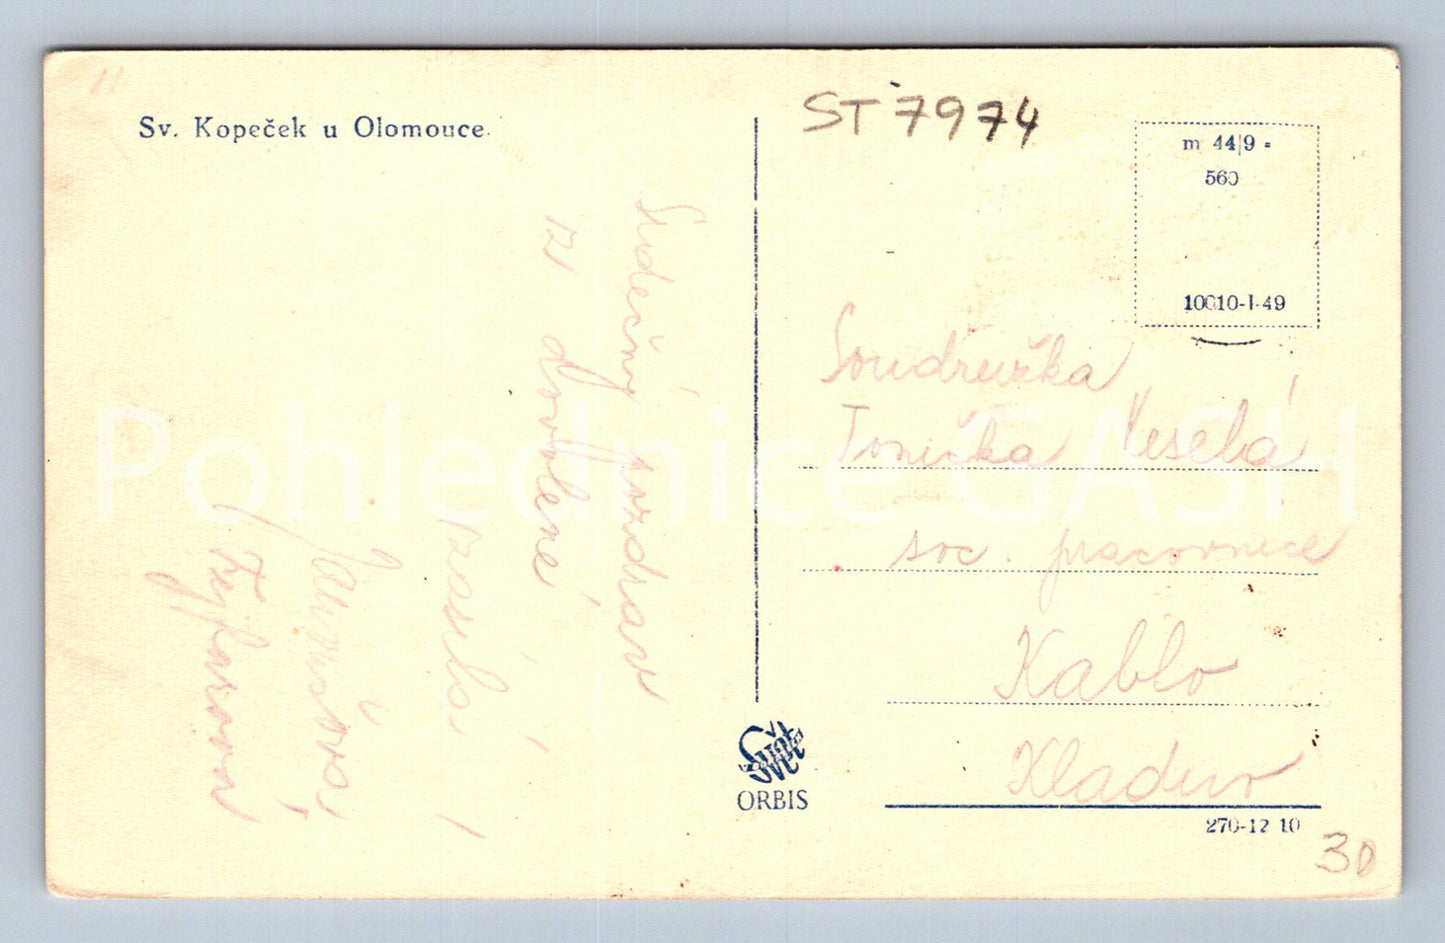 Sv. Kopeček u Olomouce.
ST 7974
m 44|9 =
560
10010-I-49
Srdečný pozdrav
z dovolené
zasílá
Janoušová
Fejfarová
Soudružka
Tonička Veselá
soc. pracovnice
Kablo
Kladno
Svět
ORBIS
270-12 10
30
Pohlednice-GASH